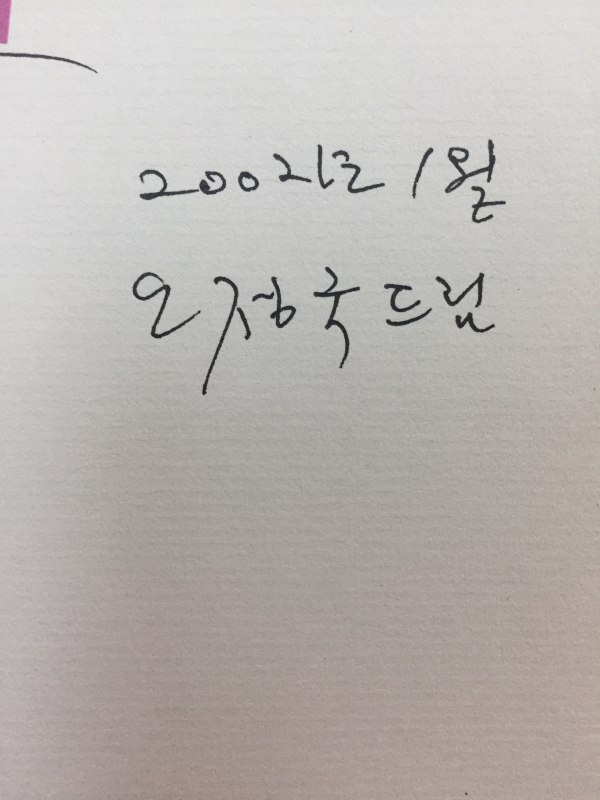 2002년 1월
오정국 드림